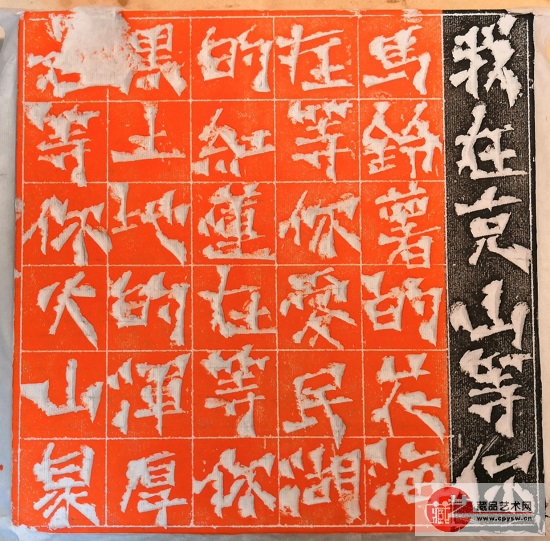 我在克山等你
馬鈴薯的花海
在等你愛民湖
的紅蓮在等你
黑土地的渾厚
等你火山泉
藏品艺术网
www.cpysw.cn